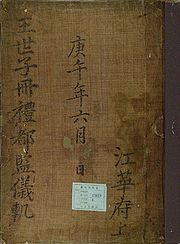 庚午年六月 日
王世子冊禮都監儀軌
江華府上